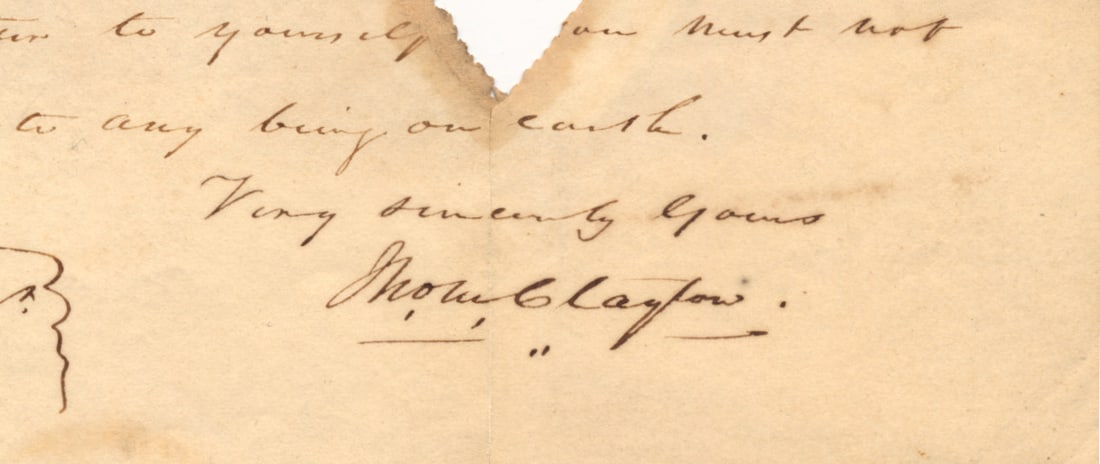 to yourself must not
to any being on earth.
Very sincerely Yours
Clayton.